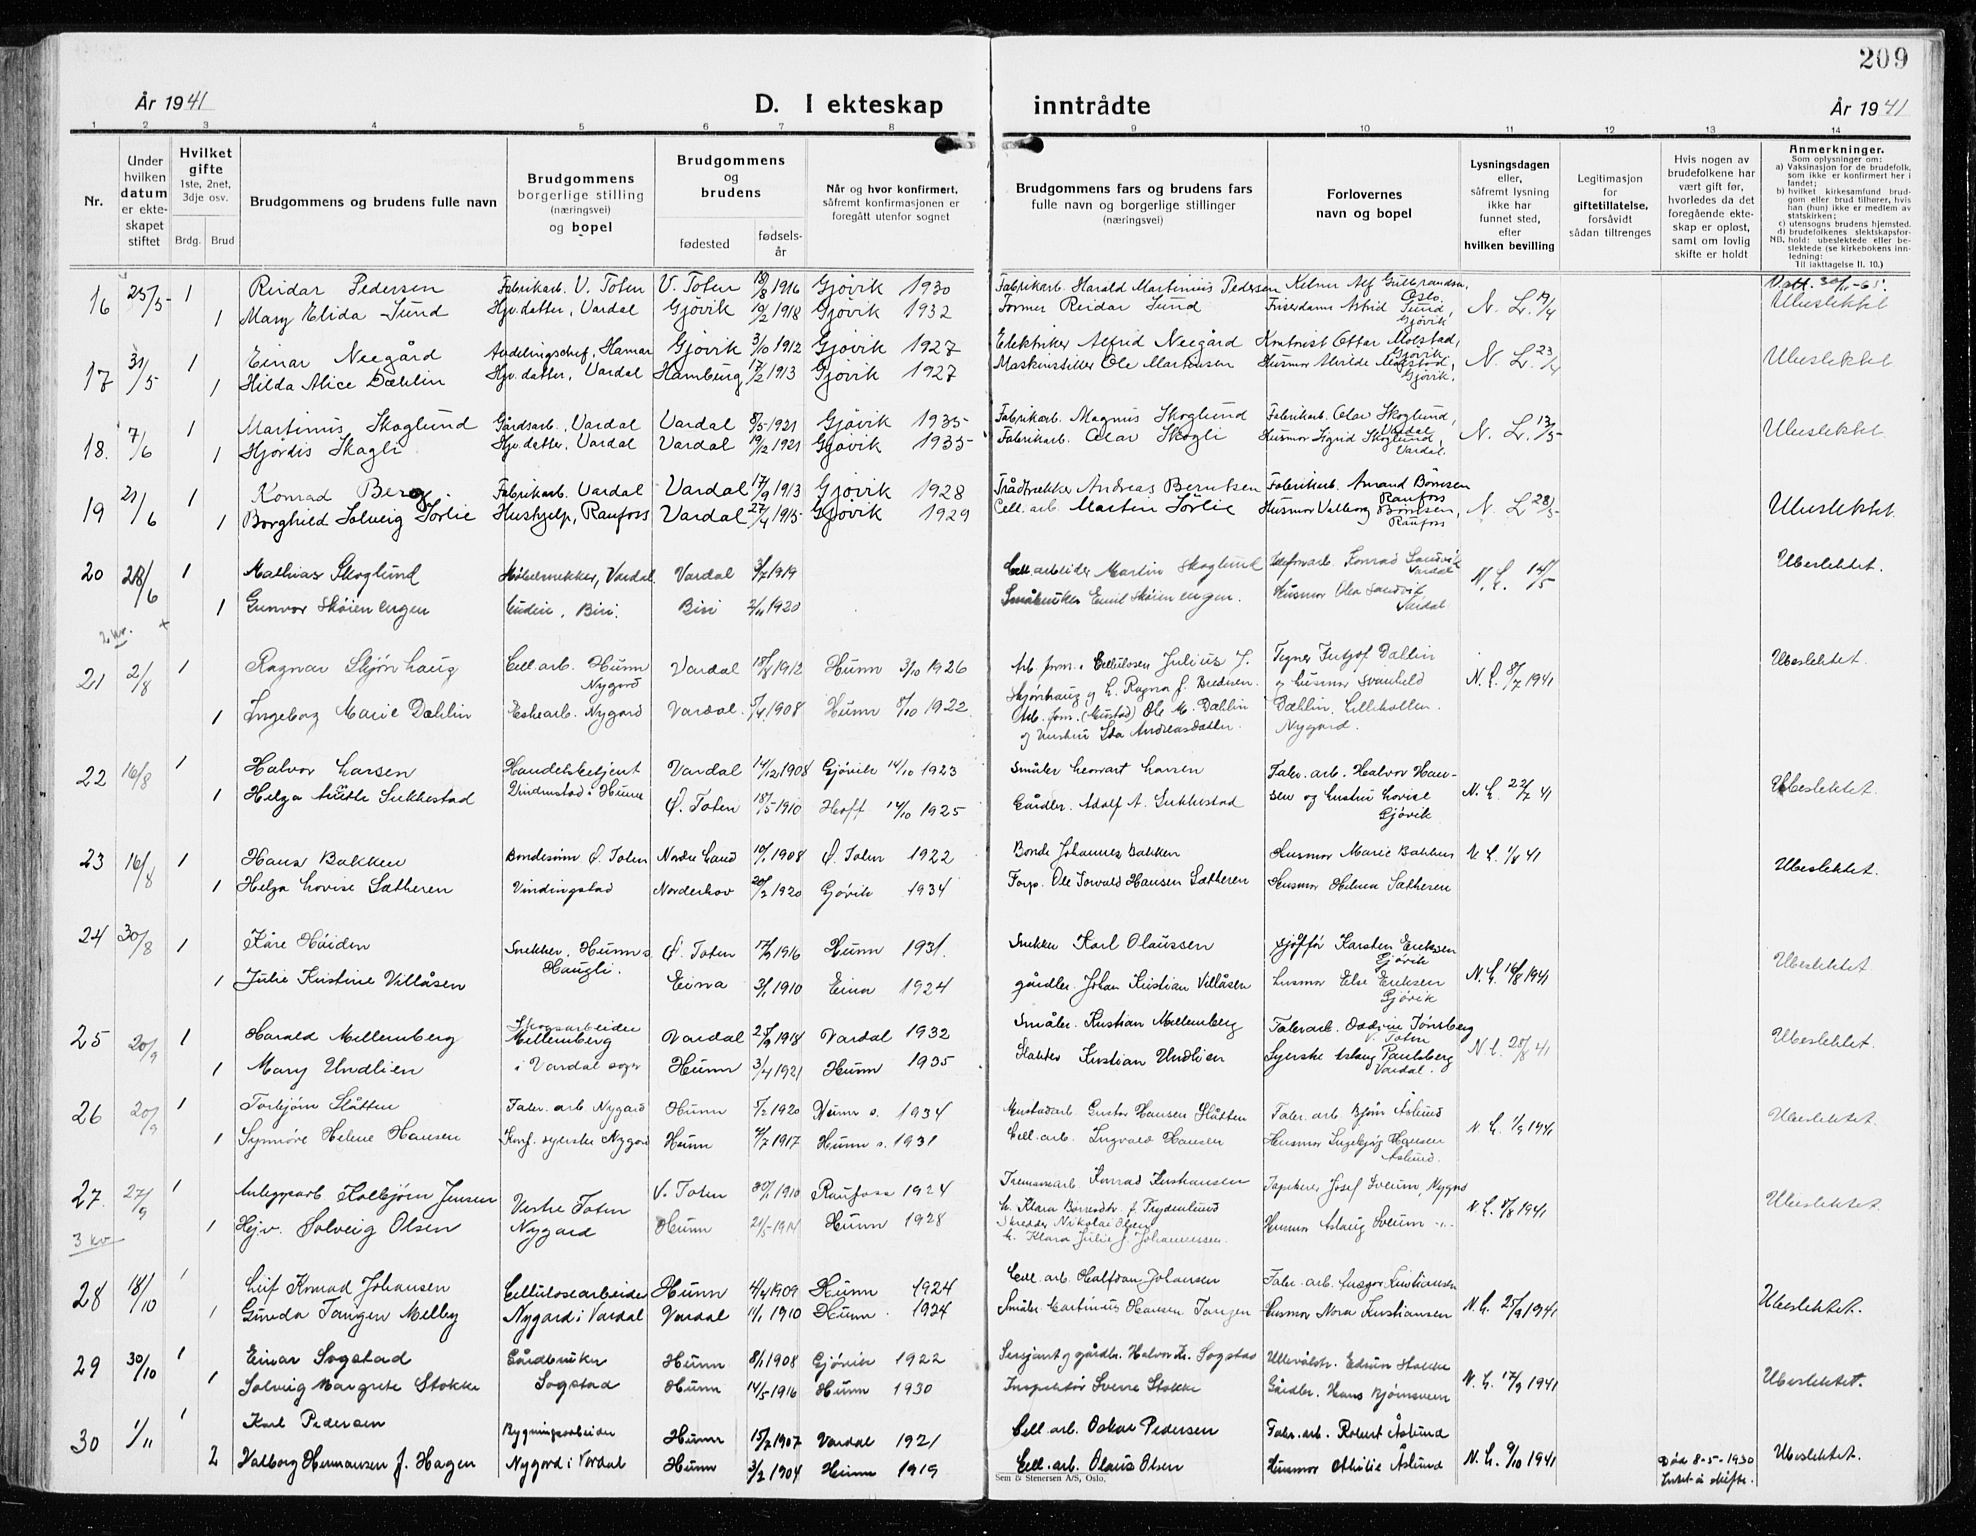 209
År 1941
D. I ekteskap inntrådte
År 1941
1 2 3 4 5 6 7 8 9 10 11 12 13 14
Nr.
Under hvilken datum er ekteskapet stiftet
Hvilket gifte 1ste, 2net, 3dje osv.
Brdg. Brud
Brudgommens og brudens fulle navn
Brudgommens borgerlige stilling (næringsvei) og bopel
Brudgommens og brudens
fødested
fødselsår
Når og hvor konfirmert, såfremt konfirmasjonen er foregått utenfor sognet
Brudgommens fars og brudens fars fulle navn og borgerlige stillinger (næringsvei)
Forlovernes navn og bopel
Lysningsdagen eller, såfremt lysning ikke har funnet sted, efter hvilken bevilling
Legitimasjon for giftetillatelse, forsåvidt sådan tiltrenges
Hvis nogen av brudefolkene har vært gift før, hvorledes da det foregående ekteskap er opløst, samt om lovlig skifte er holdt
Anmerkninger.
Som oplysninger om:
a) Vaksinasjon for de brudefolk, som ikke er konfirmert her i landet;
b) hvilket kirkesamfund brudgom eller brud tilhører, hvis han (hun) ikke er medlem av statskirken;
c) utensogns brudens hjemsted.
d) brudefolkenes slektskapsforhold: ubeslektede eller beslektede (se kirkebokens innledning:
NB. Til iakttagelse II. 10.)
16 25/5 1 Reidar Pedersen Fabrikarb. V. Toten V. Toten 18/8 1916 Gjøvik 1930 Fabrikarb. Harald Martinius Pedersen Kelner Alf Gulbrandsen, Oslo
1 Mary Elida Sund Hjv. datter, Vardal Gjøvik 19/2 1918 Gjøvik 1932 Former Reidar Sund Frisørdame Astrid Sund, Gjøvik N. L. 19/4 Ubeslektet
17 31/5 1 Einar Neegård Avdelingschef, Hamar Gjøvik 3/10 1912 Gjøvik 1927 Elektriker Alfrid Neegård Kontorist Ottar Molstad, Gjøvik
1 Hilda Alice Dæhlin Hjv. datter, Vardal Hamburg 17/2 1913 Gjøvik 1927 Maskinstiller Ole Martinsen Husmor Molstad, Gjøvik. N. L. 23/4 Ubeslektet
18. 7/6 1 Martinus Skoglund Gårdsarb., Vardal Vardal 8/5 1921 Gjøvik 1935 Fabrikarb. Magnus Skoglund Fabrikarb. Olav Skoglund, Vardal
1 Hjørdis Skogli Hjv. datter, Vardal Vardal 19/12 1921 Gjøvik 1935 Fabrikarb. Olav Skogli Husmor Sigrid Skoglund, Vardal. N. L. 13/5 Ubeslektet
19 21/6 1 Konrad Berg. Fabrikarb. Vardal Vardal 17/9 1913 Gjøvik 1928 Trådtrekker Andreas Berntsen Fabrikarb. Amand Bønsen Raufoss
1 Borghild Solveig Sørlie Hushjelp, Raufoss Vardal 27/4 1915 Gjøvik 1929 Cell. arb. Martin Sørlie Husmor Valborg Bønsen, Raufoss N. L. 28/5 Ubeslektet.
20 28/6 1 Mathias Skoglund Møbelsnekker, Vardal Vardal 3/7 1919 Cell. arbeider Martin Skoglund Telefonarb. Konrad Sandvik Vardal N. L. 14/5 Ubeslektet.
1 Gunvor Skøienengen Biri. Biri 2/11 1920 Småbruker Emil Skøienengen. Husmor Olea Sandvik Vardal
2 kv. +
21 2/8 1 Ragnar Skjønhaug Cell. arb. Hunn Nygard Vardal 18/8 1912 Hunn 3/10 1926 Arb. form. i Cellulosen Julius J. Skjønhaug og h. Ragna f. Bredesen. Tegner Dæhlin og husmor Svanhild Dæhlin, Lillekollen. Nygard. N. L. 8/7 1941 Ubeslektet.
1 Ingeborg Marie Dæhlin Eskearb. Nygard Vardal. 5/4 1908 Hunn 8/10 1922. Arb. form. (Mustad) Ole M. Dæhlin og hustru Ida Andreasdatter.
22 16/8 1 Halvor Larsen Handelsbetjent Vardal 14/12 1908 Gjøvik 14/10 1923 Småbr. Larsen Fabr. arb. Halvor Hansen og hustru Lovise Gjøvik N. L. 22/7 41 Ubeslektet.
1 Helga Sukkestad Vindinstad i Hunn Ø. Toten 18/5 1910 Hoff 14/10 1925 Gårdbr. Adolf A. Sukkestad
23 16/8 1 Hans Bakken Bondesønn Ø. Toten Nordre Land 19/1 1908 Ø. Toten 1922 Bonde Johannes Bakken Husmor Marie Bakken N. L. 1/8 41 Ubeslektet.
1 Helga Lovise Sætheren Vindingstad Norderhov 20/2 1920 Gjøvik 1934 Forp. Ole Torvald Hansen Sætheren Husmor Helena Sætheren
24 30/8 1 Kåre Høiden Snekker, Hunn s. Haugli. Ø. Toten 17/9 1916 Hunn 1931. Snekker Karl Olaussen Sjøffør Karsten Eriksen Gjøvik
1 Julie Kristine Villåsen Eina 3/1 1910 Eina 1924 gårdbr. Johan Kristian Villåsen husmor Else Eriksen Gjøvik N. L. 16/8 1941 Ubeslektet
25 20/9 1 Harald Mellemberg Skogsarbeider Mellemberg Vardal 25/9 1918 Vardal 1932 Småbr. Kristian Mellemberg Fabr.arb. Oddvin Tønsberg V. Toten
1 Mary Undlien i Vardal sogn Hunn 3/4 1921 Hunn 1935 Slakter Kristian Undlien Syerske Aslaug Paulsberg Vardal. N. L. 25/8 41 Ubeslektet.
26 20/9 1 Torbjørn Slåtten Fabr. arb. Nygard Hunn 5/2 1920 Hunn s. 1934 Mustadarb. Gustav Hansen Slåtten Fabr. arb. Bjørn Åslund
1 Synnøve Helene Hansen Konf. syerske Nygard Hunn 4/7 1917 Hunn s. 1931 Cell. arb. Ingvald Hansen Husmor Ingebjørg Hansen Åslund. N. L. 1/9 1941 Ubeslektet.
27. 27/9 1 Anleggsarb Kolbjørn Jensen Vestre Toten V. Toten 30/1 1910 Raufoss 1924 Konrad Kristiansen h. Klara f. Frydenlund Tapetserer Josef Sveum, Nygard
1 Hjv. Solveig Olsen Nygard Hunn 21/5 1914 Hunn 1928 Skredder Nikolai Olsen h. Klara Julie f. Johannessen. Husmor Aslaug Sveum N. L. 8/8 1941 Ubeslektet.
3 kv
28 18/10 1 Leif Konrad Johansen Cellulosearbeider Hunn 4/4 1909 Hunn 1924 Cell. arb. Halfdan Johansen Fabr. arb. Kristiansen
1 Gunda Tangen Melby Nygard i Vardal Vardal 14/1 1910 Hunn. 1924 Småbr. Martinius Hansen Tangen Husmor Nora Kristiansen N. L. 25/9 1941 Ubeslektet.
29 30/10 1 Einar Sogstad Gårdbruker Hunn 8/1 1908 Gjøvik 1922 Sersjant og gårdbr. Halvor Kr. Sogstad Ullevålstr. Edvin Stokke
1 Solveig Margrete Stokke Sogstad Hunn 14/5 1916 Hunn 1930 Inspektør Sverre Stokke Gårdbr. Hans Bjørnsveen N. L. 17/9 1941 Ubeslektet.
30 1/11 1 Karl Pedersen Bygningsarbeider Hunn 15/2 1907 Vardal 1921 Cell. arb. Oskar Pedersen Fabr. arb. Robert Åslund
2 Valborg Hermansen f. Hagen Nygard i Vardal Hunn 3/2 1904 Hunn 1919 Cell. arb. Olaus Olsen Husmor Åslund N. L. 9/10 1941 Død 8-5-1930 Intet å skifte. Ubeslektet.
Sem & Stenersen A/S, Oslo.